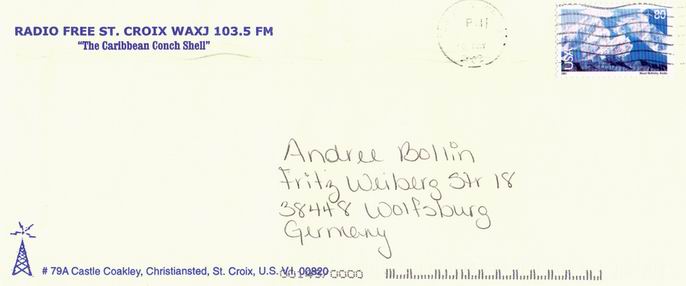 RADIO FREE ST. CROIX WAXJ 103.5 FM
"The Caribbean Conch Shell"
P.M
80
USA
Andree Bollin
Fritz Weiberg Str 18
38448 Wolfsburg
Germany
# 79A Castle Coakley, Christiansted, St. Croix, U.S. V.I. 00820